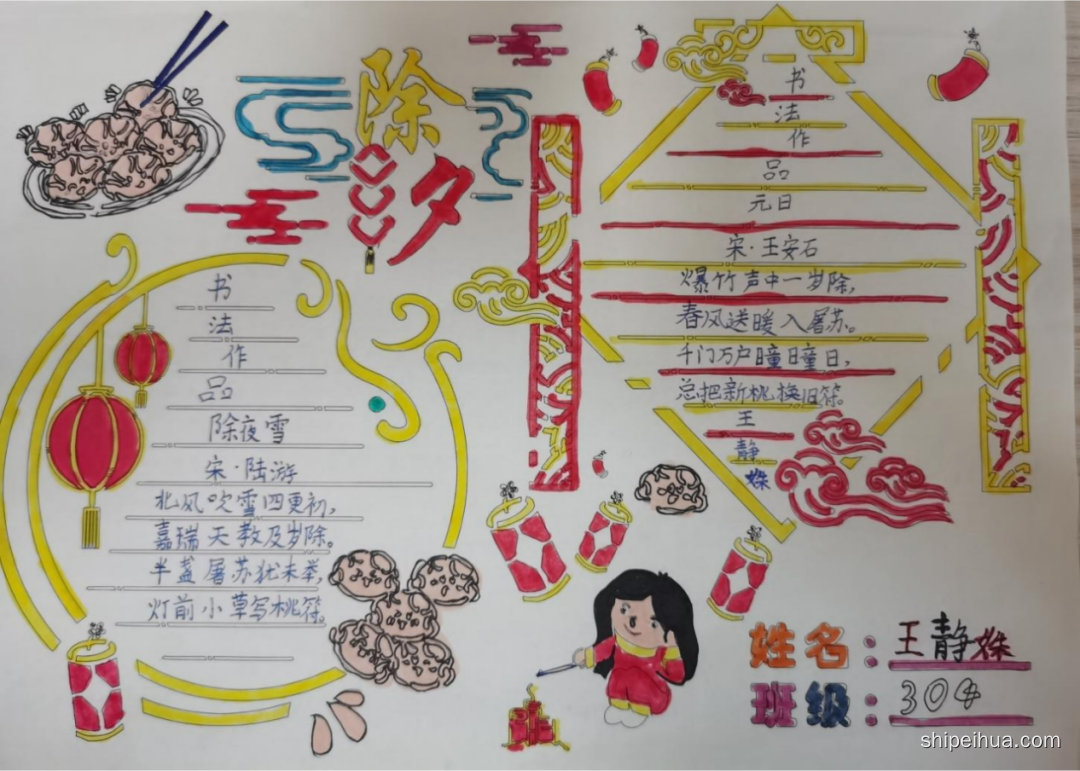 除夕
书
法
作
品
除夜雪
宋·陆游
北风吹雪四更初,
嘉瑞天教及岁除。
半盏屠苏犹未举,
灯前小草写桃符。
书
法
作
品
元日
宋·王安石
爆竹声中一岁除,
春风送暖入屠苏。
千门万户曈曈日,
总把新桃换旧符。
王
静
姝
姓名:王静姝
班级:304
shipeihua.com